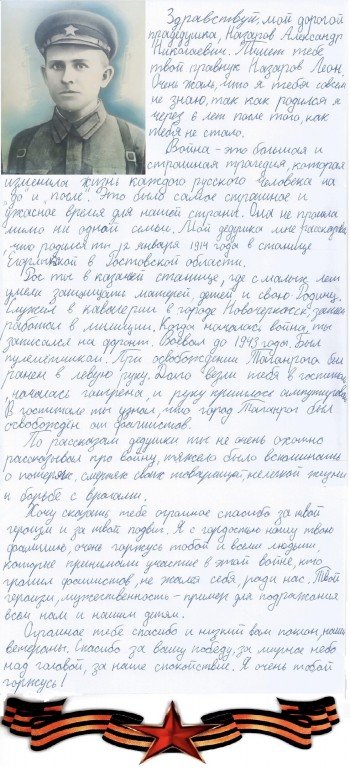 Здравствуй, мой дорогой
прадедушка, Назаров Александр
Николаевич. Пишет тебе
твой правнук Назаров Леон.
Очень жаль, что я тебя совсем
не знаю, так как родился я
через 6 лет после того, как
тебя не стало.
Война - это большая и
страшная трагедия, которая
изменила жизнь каждого русского человека на
"до и после". Это было самое страшное и
ужасное время для нашей страны. Она не прошла
мимо ни одной семьи. Мой дедушка мне рассказал,
что родился ты 12 января 1914 года в станице
Егорлыкской в Ростовской области.
Рос ты в казачей станице, где с малых лет
умели защищать матерей, детей и свою Родину.
Служил в кавалерии в городе Новочеркасск, затем
работал в милиции. Когда началась война, ты
записался на фронт. Воевал до 1943 года. Был
пулемётчиком. При освобождении Таганрога был
ранен в левую руку. Долго везли тебя в госпиталь,
началась гангрена, и руку пришлось ампутировать.
В госпитале ты узнал, что город Таганрог был
освобождён от фашистов.
По рассказам дедушки ты не очень охотно
рассказывал про войну, тяжело было вспоминать
о потерях, смертях своих товарищах, нелегкой жизни
и борьбе с врагами.
Хочу сказать тебе огромное спасибо за твой
героизм и за твой подвиг. Я с гордостью ношу твою
фамилию, очень горжусь тобой и всеми людьми,
которые принимали участие в этой войне, кто
громил фашистов, не жалея себя, ради нас. Твой
героизм, мужественность - пример для подражания
всем нам и нашим детям.
Огромное тебе спасибо и низкий вам поклон, наши
ветераны. Спасибо за вашу победу, за мирное небо
над головой, за наше спокойствие. Я очень тобой
горжусь!